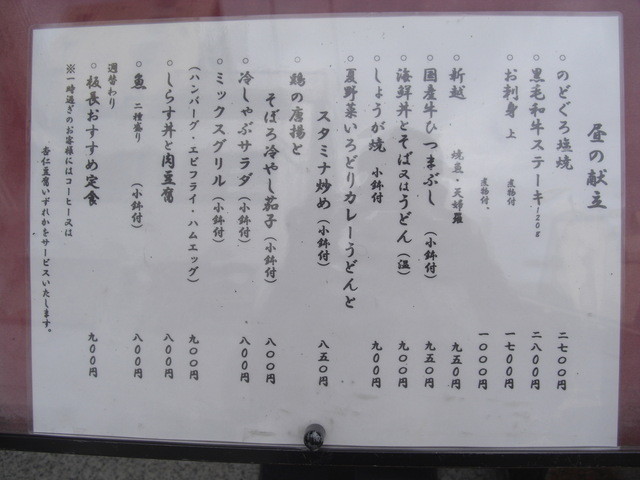 昼の献立
○のどぐろ塩焼 二七〇〇円
○黒毛和牛ステーキ120g 二八〇〇円
○お刺身 上 煮物付 一七〇〇円
煮物付。 一〇〇〇円
○新越 焼魚・天婦羅 九五〇円
○国産牛ひつまぶし(小鉢付) 九五〇円
○海鮮丼とそば又はうどん(温) 九〇〇円
○しょうが焼 小鉢付 九〇〇円
○夏野菜いろどりカレーうどんと
スタミナ炒め(小鉢付) 八五〇円
○鶏の唐揚と
そぼろ冷やし茄子(小鉢付) 八〇〇円
○冷しゃぶサラダ(小鉢付) 八〇〇円
○ミックスグリル(小鉢付)
(ハンバーグ・エビフライ・ハムエッグ) 九〇〇円
○しらす丼と肉豆腐 八〇〇円
○魚 二種盛り (小鉢付) 八〇〇円
週替わり
○板長おすすめ定食 九〇〇円
※一時過ぎのお客様にはコーヒー又は
杏仁豆腐いずれかをサービスいたします。